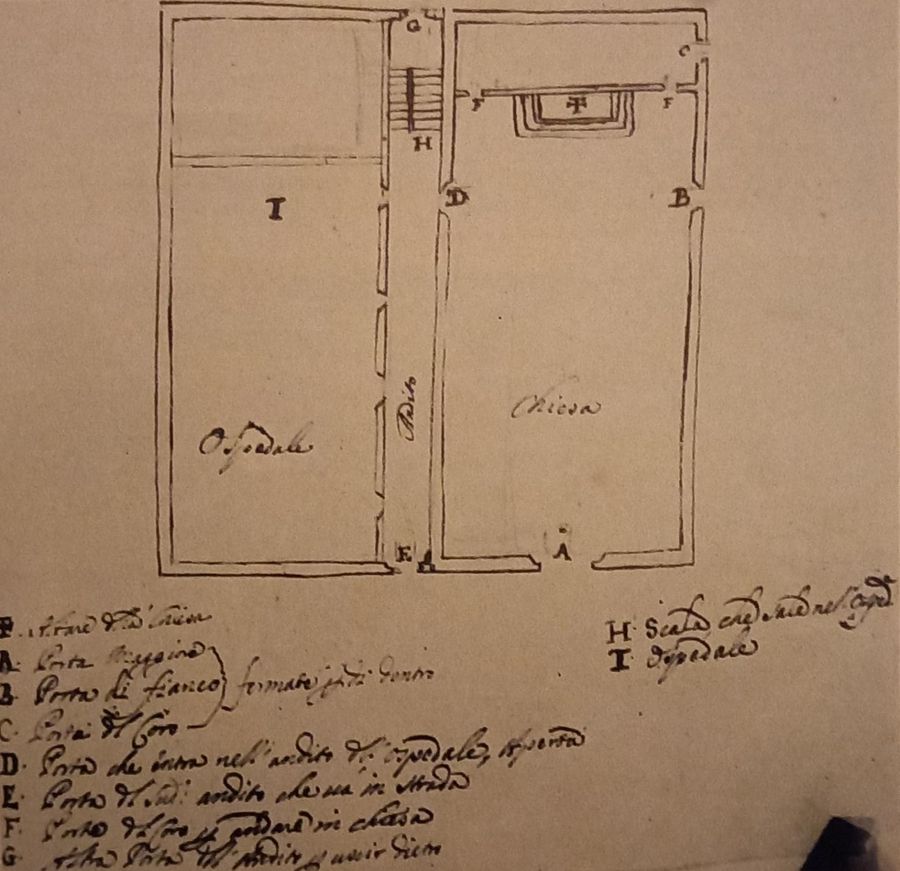 G
C
F
✝
F
H
I
D
B
Andito
Chiesa
Ospedale
E
A
✝. Altare dla Chiesa
A. Porta Maggiore
B. Porta di fianco
C. Porta dl Coro
fermate di dentro
D. Porta che entra nell'andito dl'ospedale, Aperta
E. Porta dl sud: andito che va in strada
F. Porte dl Coro p andare in chiesa
G. Altra Porta dl' Andito p uscir dietro
H. Scala che sale nell'
I. Ospedale